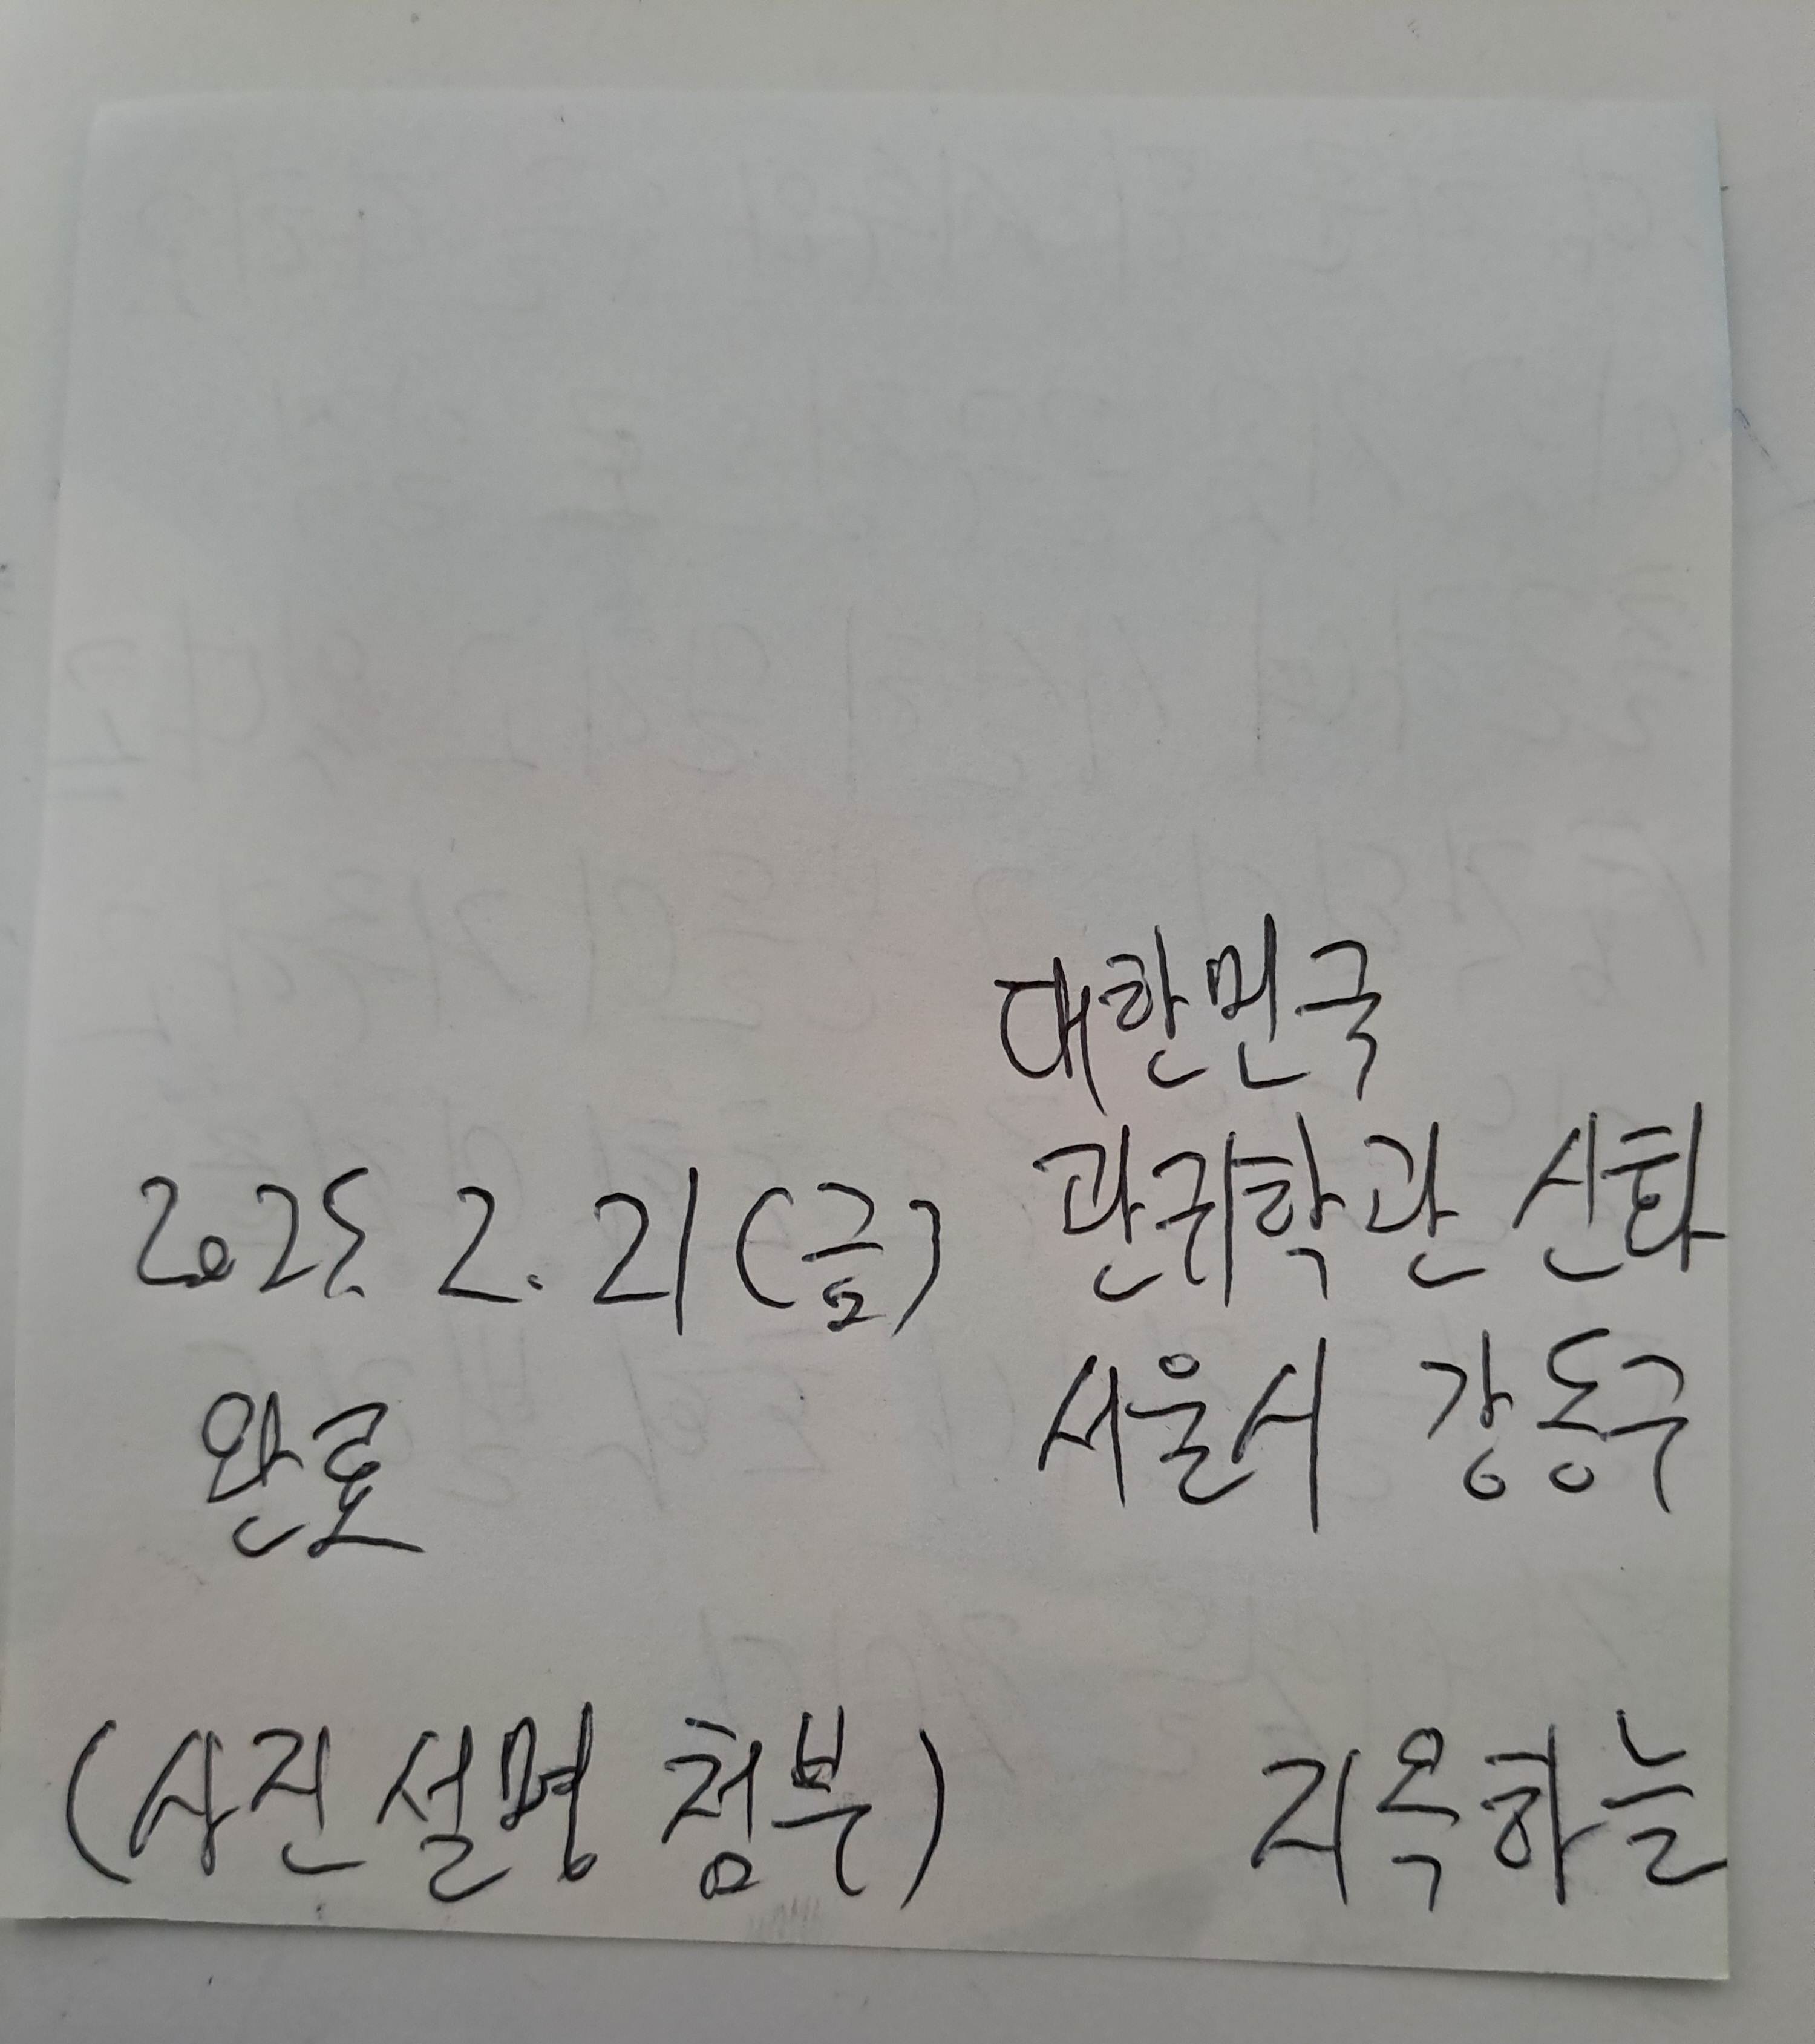 대한민국
2025. 2. 21(금) 관귀학관 신타
서울시 강동구
완료
(사진설명 첨부) 지옥하늘